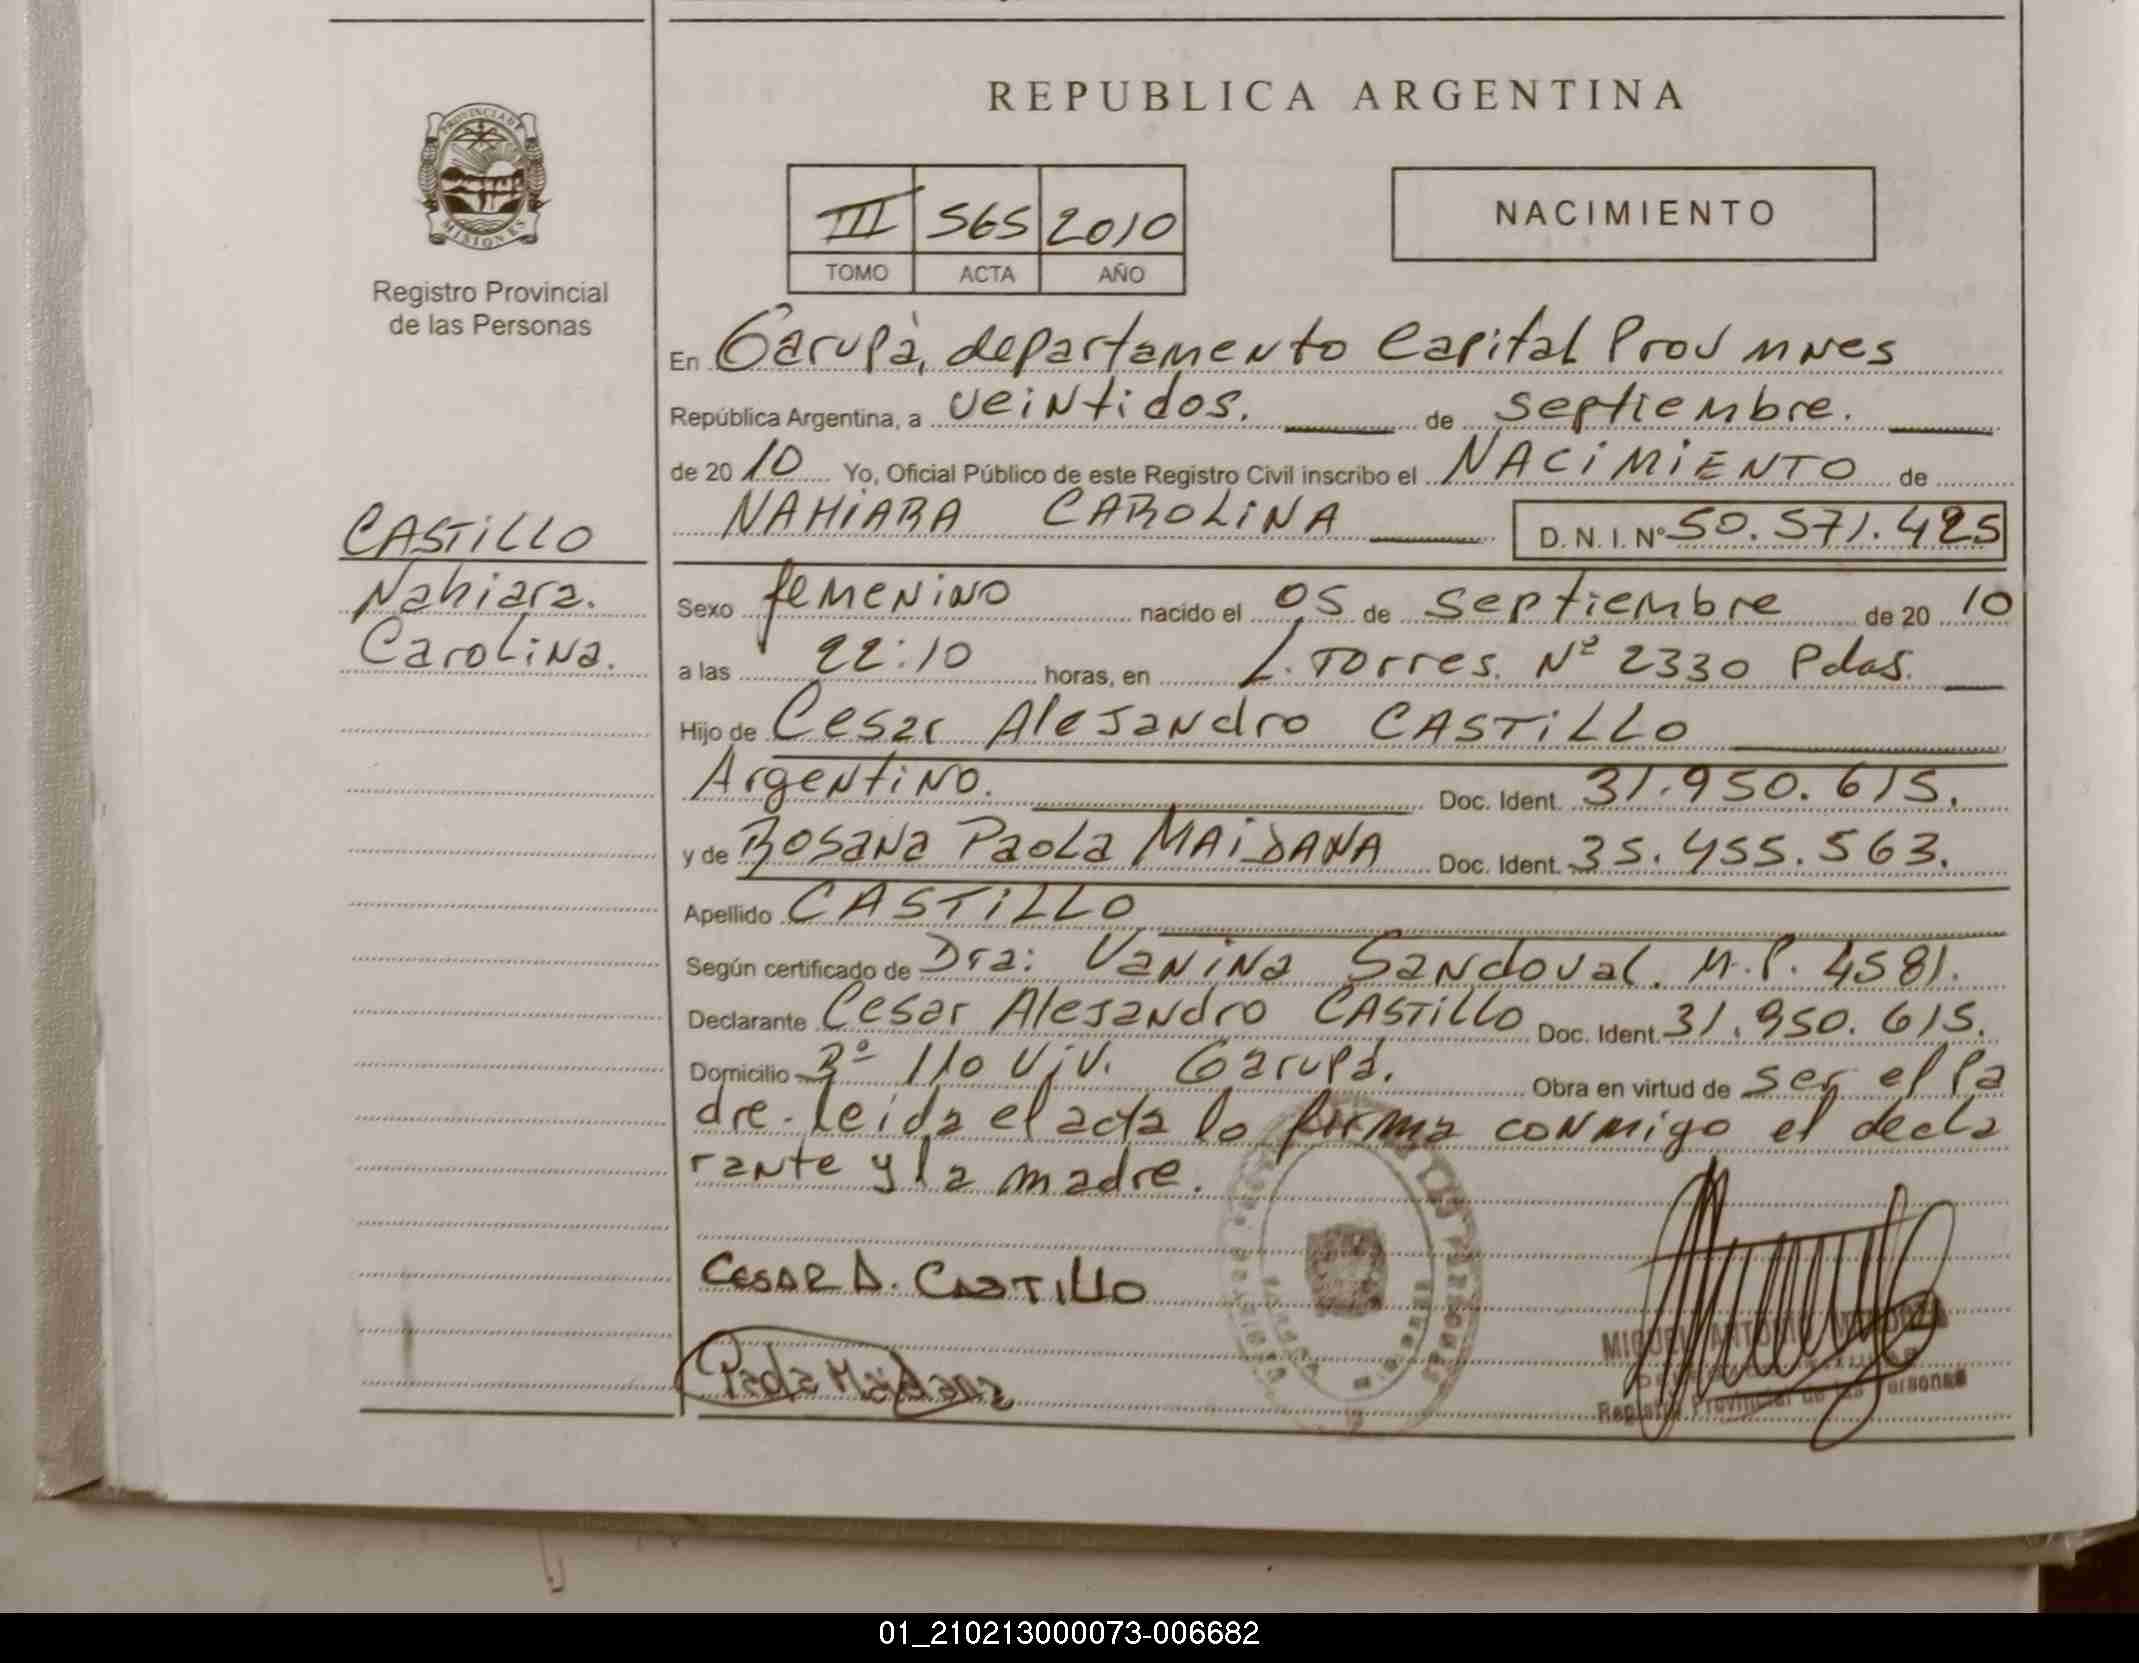 REPUBLICA ARGENTINA
PROVINCIA DE
MISIONES
Registro Provincial
de las Personas
III 565 2010
TOMO ACTA AÑO
NACIMIENTO
En Garupà, departamento Capital Prov Mnes
República Argentina, a veintidos. de septiembre.
de 20 10 Yo, Oficial Público de este Registro Civil inscribo el NACIMIENTO de
NAHIARA CAROLINA D. N. I. Nº 50.571.425
CASTILLO
Nahiara.
Carolina.
Sexo femenino nacido el 05 de septiembre de 20 10
a las 22:10 horas, en L. Torres. Nº 2330 Pdas.
Hijo de Cesar Alejandro CASTILLO
Argentino. Doc. Ident. 31.950.615.
y de Rosana Paola MAIDANA Doc. Ident. 35.455.563.
Apellido CASTILLO
Según certificado de Dra: Vanina Sandoval. M.P. 4581.
Declarante Cesar Alejandro CASTILLO Doc. Ident. 31.950.615.
Domicilio Bº 110 Viv. Garupá. Obra en virtud de ser el pa
dre. Leida el acta la firma conmigo el decla
rante y la madre.
CESAR A. CASTILLO
MIGUEL ANTONIO
Registro Provincial de las Personas
01_210213000073-006682